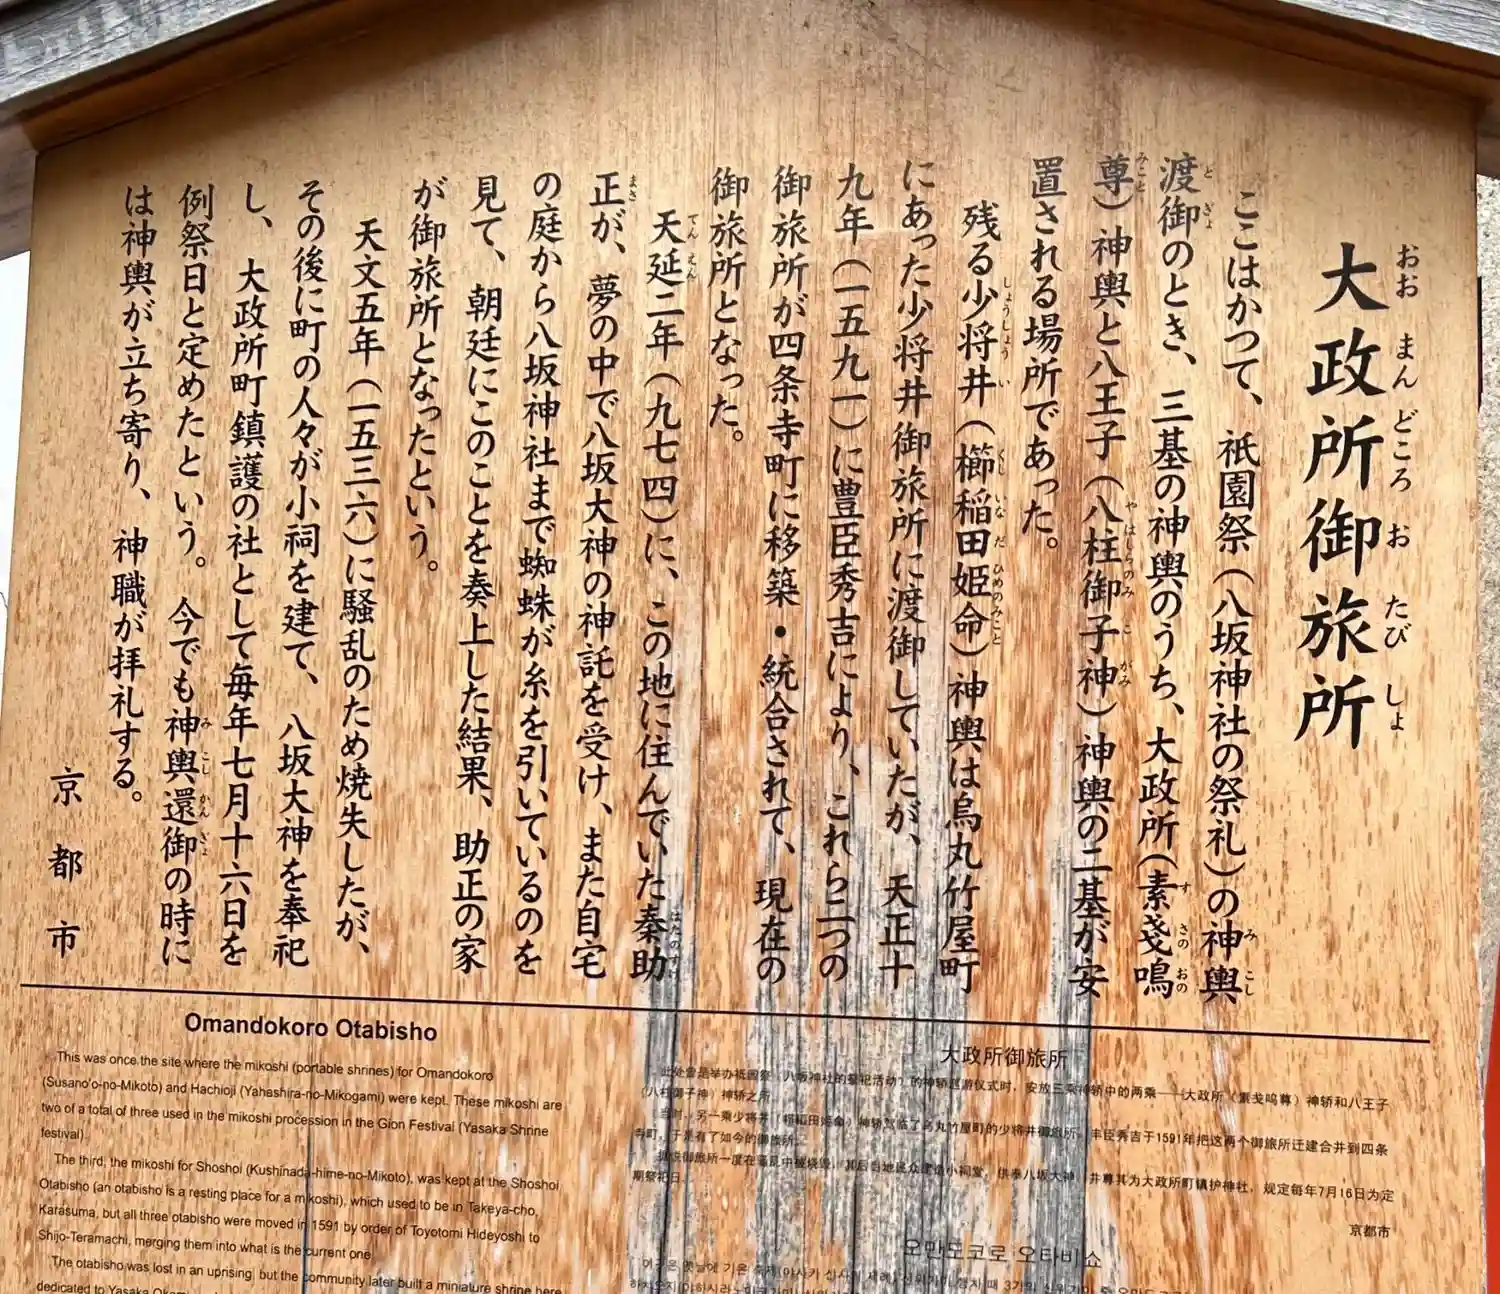 大政所御旅所
おお まん どころ お たび しょ
ここはかつて、祇園祭（八坂神社の祭礼）の神輿
み こし
渡御のとき、三基の神輿のうち、大政所（素戔嗚
と ぎょ す さの おの
尊）神輿と八王子（八柱御子神）神輿の二基が安
みこと や はしらのみ こ がみ
置される場所であった。
残る少将井（櫛稲田姫命）神輿は烏丸竹屋町
しょうしょう い くし いな だ ひめのみこと
にあった少将井御旅所に渡御していたが、天正十
九年（一五九一）に豊臣秀吉により、これら二つの
御旅所が四条寺町に移築・統合されて、現在の
御旅所となった。
天延二年（九七四）に、この地に住んでいた秦助
てん えん はたのすけ
正が、夢の中で八坂大神の神託を受け、また自宅
まさ
の庭から八坂神社まで蜘蛛が糸を引いているのを
見て、朝廷にこのことを奏上した結果、助正の家
が御旅所となったという。
天文五年（一五三六）に騒乱のため焼失したが、
その後に町の人々が小祠を建て、八坂大神を奉祀
し、大政所町鎮護の社として毎年七月十六日を
例祭日と定めたという。今でも神輿還御の時に
み こし かん ぎょ
は神輿が立ち寄り、神職が拝礼する。
京都市
Omandokoro Otabisho
This was once the site where the mikoshi (portable shrines) for Omandokoro
(Susano'o-no-Mikoto) and Hachioji (Yahashira-no-Mikogami) were kept. These mikoshi are
two of a total of three used in the mikoshi procession in the Gion Festival (Yasaka Shrine
festival).
The third, the mikoshi for Shoshoi (Kushinada-hime-no-Mikoto), was kept at the Shoshoi
Otabisho (an otabisho is a resting place for a mikoshi), which used to be in Takeya-cho,
Karasuma, but all three otabisho were moved in 1591 by order of Toyotomi Hideyoshi to
Shijo-Teramachi, merging them into what is the current one.
The otabisho was lost in an uprising, but the community later built a miniature shrine here
dedicated to Yasaka
大政所御旅所
此处曾是举办祗园祭（八坂神社的祭祀活动）的神轿巡游仪式时，安放三乘神轿中的两乘──大政所（素戋鸣尊）神轿和八王子
（八柱御子神）神轿之所。
当时，另一乘少将井（栉稻田姬命）神轿驾临了乌丸竹屋町的少将井御旅所。丰臣秀吉于1591年把这两个御旅所迁建合并到四条
寺町，于是有了如今的御旅所。
御旅所一度在骚乱中被烧毁，其后当地民众建造小祠堂，供奉八坂大神，并尊其为大政所町镇护神社，规定每年7月16日为定
期祭祀日。
京都市
오만도코로 오타비쇼